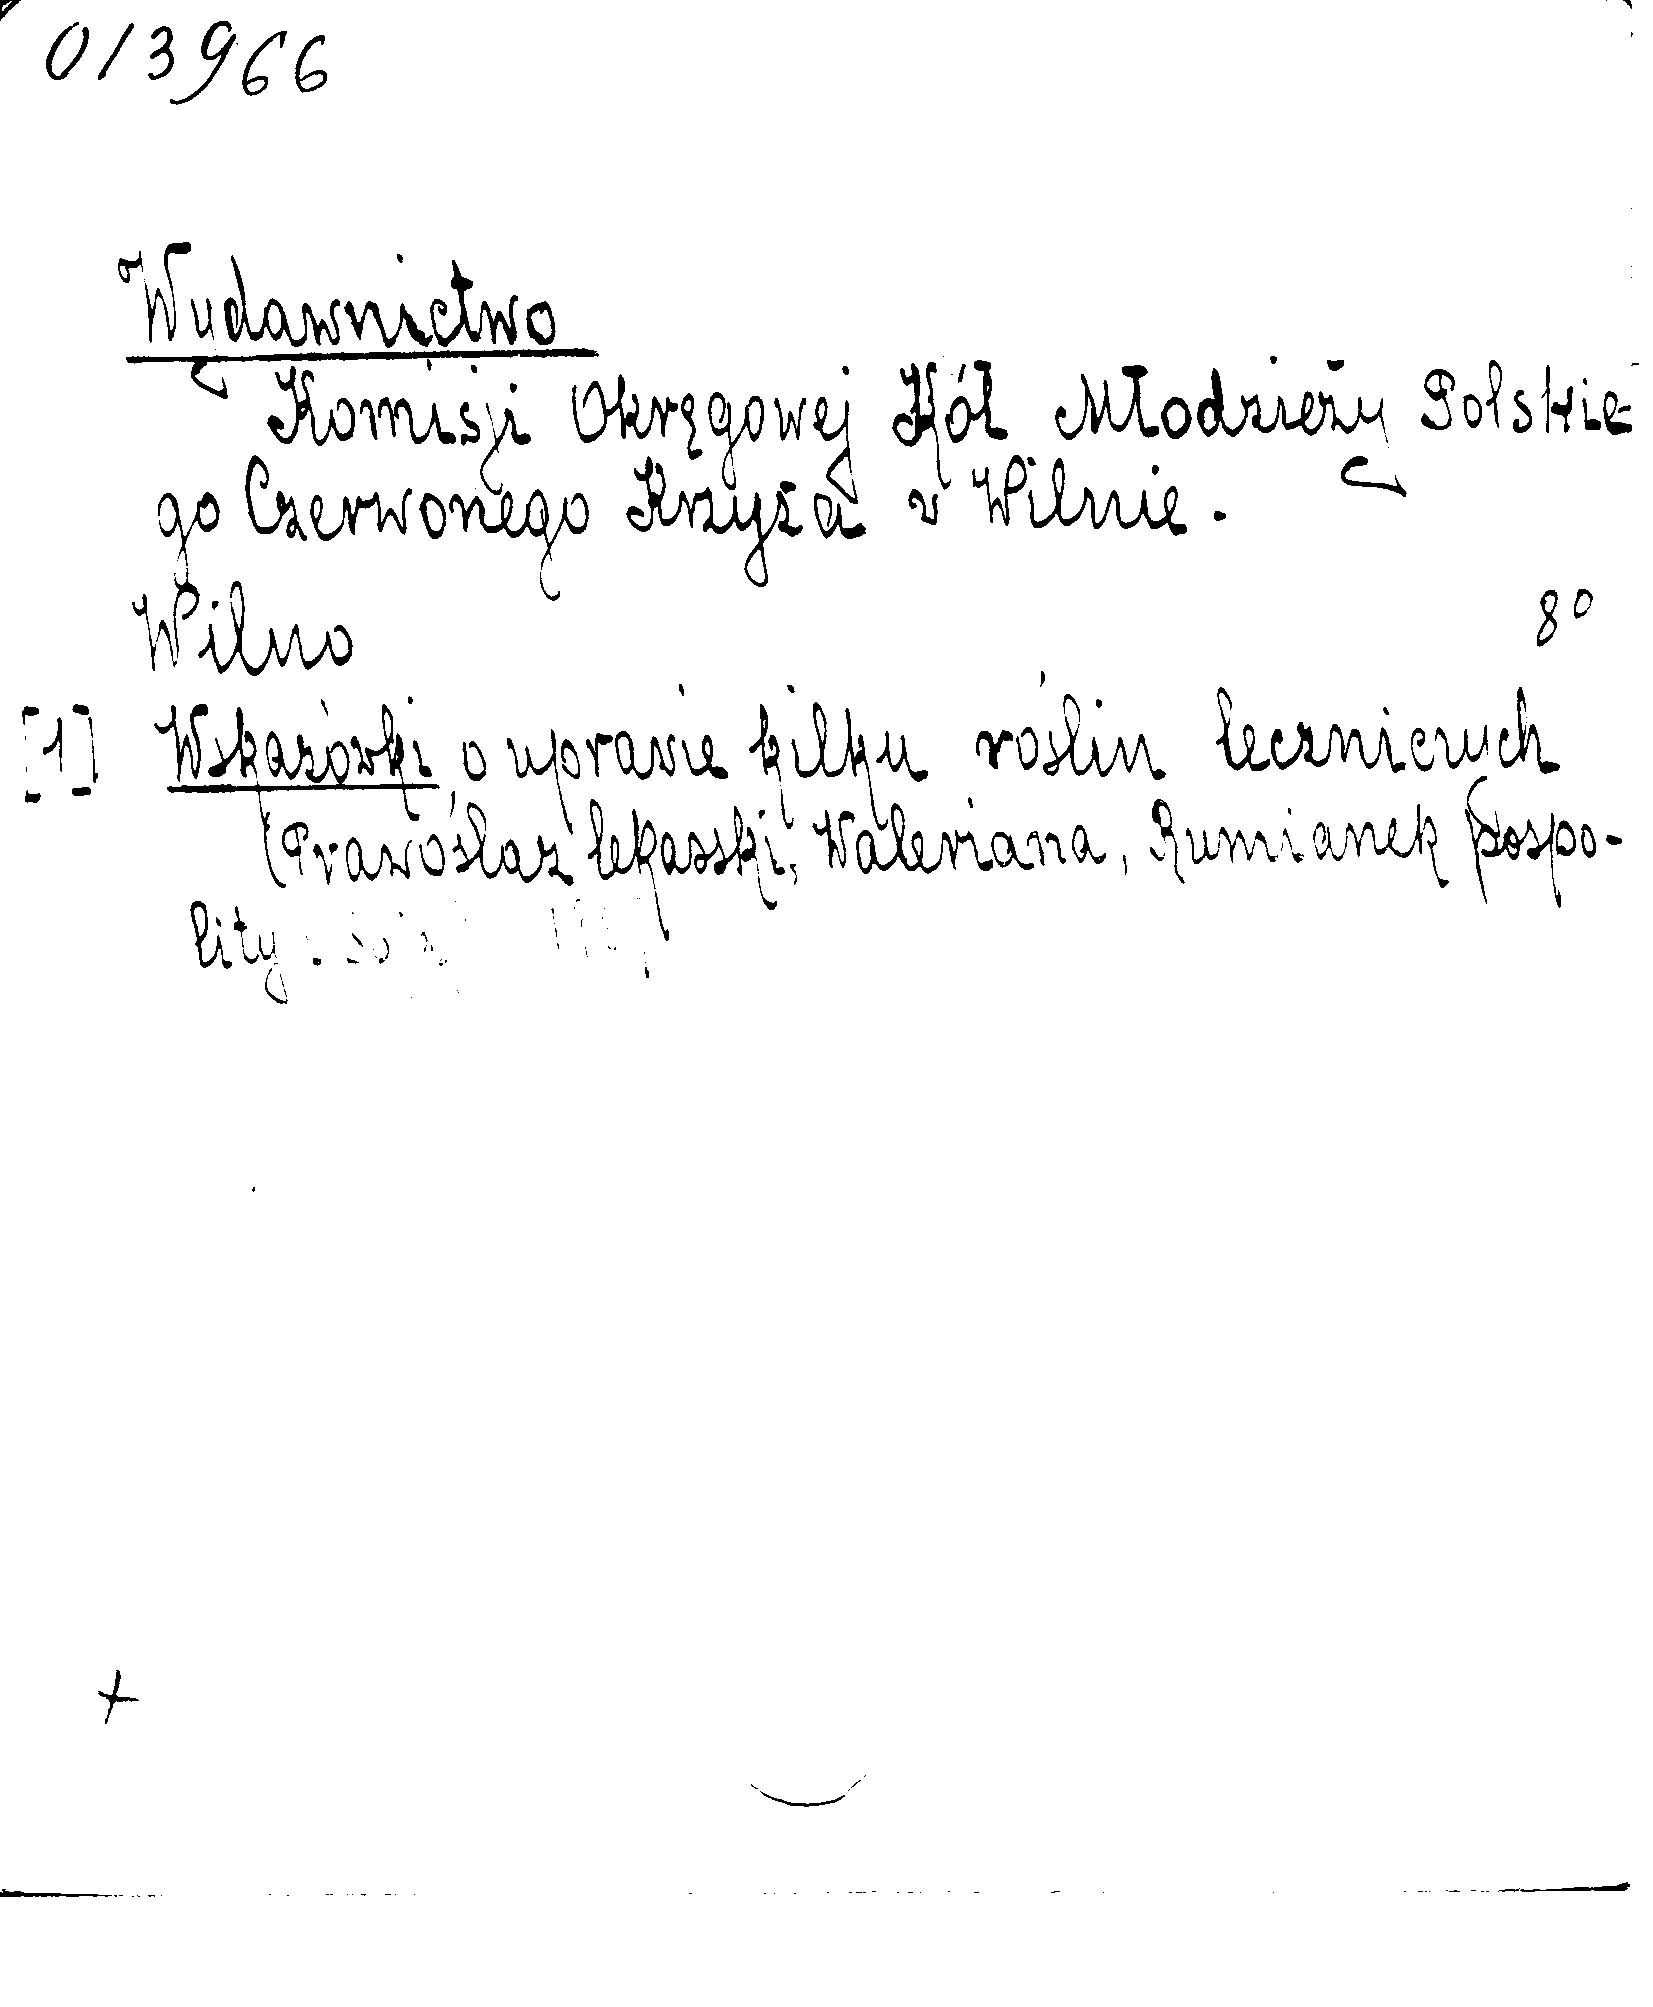 013966
Wydawnictwo
Komisji Okręgowej Kół Młodzieży Polskie-
go Czerwonego Krzyża w Wilnie.
Wilno 8°
[1] Wskazówki o uprawie kilku roślin leczniczych
(Prawoślaz lekarski, Waleriana, Rumianek pospo-
lity.
+